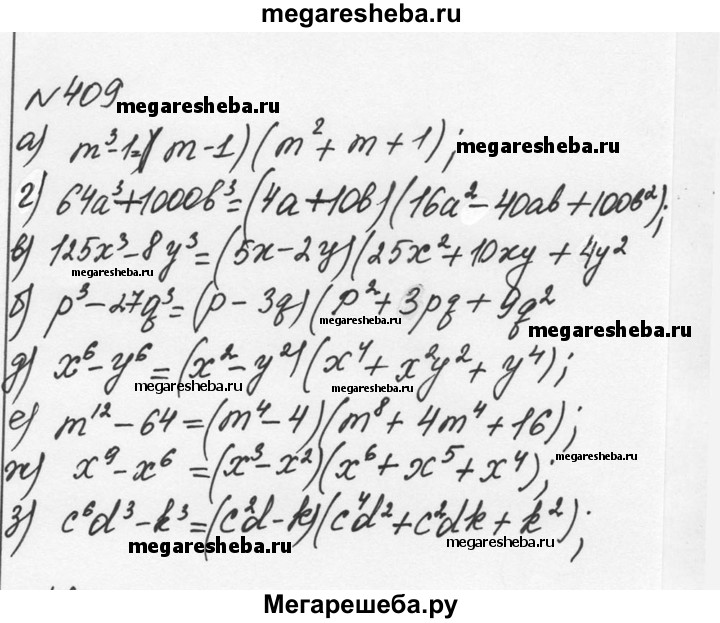 megaresheba.ru
№409
megaresheba.ru
а) m³-1=(m-1)(m²+m+1);
megaresheba.ru
г) 64a³+1000b³=(4a+10b)(16a²-40ab+100b²);
в) 125x³-8y³=(5x-2y)(25x²+10xy+4y²
megaresheba.ru
б) p³-27q³=(p-3q)(p²+3pq+9q²
megaresheba.ru
megaresheba.ru
д) x⁶-y⁶=(x²-y²)(x⁴+x²y²+y⁴);
megaresheba.ru
megaresheba.ru
е) m¹²-64=(m⁴-4)(m⁸+4m⁴+16);
ж) x⁹-x⁶=(x³-x²)(x⁶+x⁵+x⁴);
megaresheba.ru
з) c⁶d³-k³=(c²d-k)(c⁴d²+c²dk+k²);
megaresheba.ru
megaresheba.ru
Мегарешеба.ру